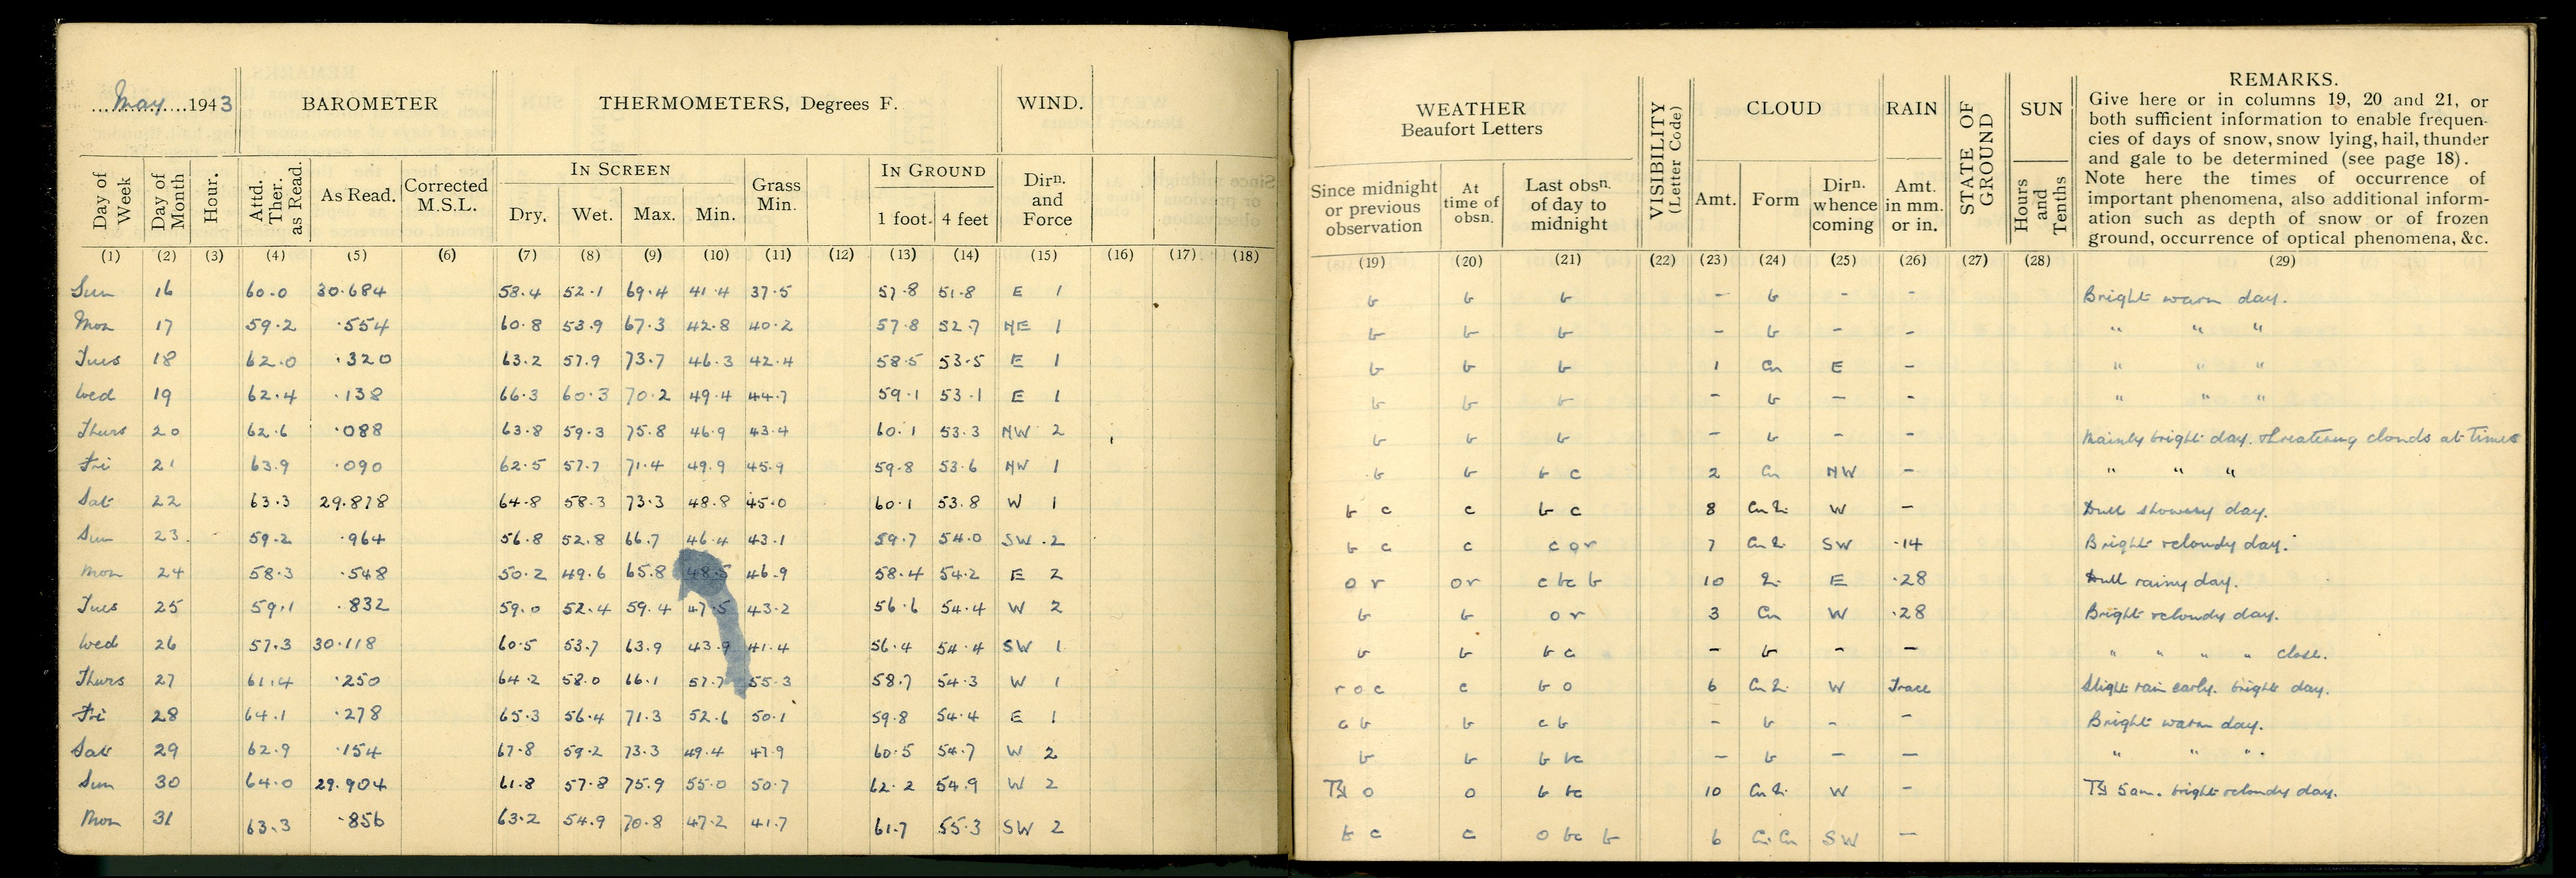 May 1943 BAROMETER THERMOMETERS, Degrees F. WIND.
IN SCREEN IN GROUND
Day of Week Day of Month Hour. Attd. Ther. as Read. As Read. Corrected M.S.L. Dry. Wet. Max. Min. Grass Min. 1 foot. 4 feet Dirn. and Force
(1) (2) (3) (4) (5) (6) (7) (8) (9) (10) (11) (12) (13) (14) (15) (16) (17) (18)
Sun 16 60.0 30.684 58.4 52.1 69.4 41.4 37.5 57.8 51.8 E 1
Mon 17 59.2 .554 60.8 53.9 67.3 42.8 40.2 57.8 52.7 NE 1
Tues 18 62.0 .320 63.2 57.9 73.7 46.3 42.4 58.5 53.5 E 1
Wed 19 62.4 .138 66.3 60.3 70.2 49.4 44.7 59.1 53.1 E 1
Thurs 20 62.6 .088 63.8 59.3 75.8 46.9 43.4 60.1 53.3 NW 2
Fri 21 63.9 .090 62.5 57.7 71.4 49.9 45.9 59.8 53.6 NW 1
Sat 22 63.3 29.878 64.8 58.3 73.3 48.8 45.0 60.1 53.8 W 1
Sun 23 59.2 .964 56.8 52.8 66.7 46.4 43.1 59.7 54.0 SW 2
Mon 24 58.3 .548 50.2 49.6 65.8 48.5 46.9 58.4 54.2 E 2
Tues 25 59.1 .832 59.0 52.4 59.4 47.5 43.2 56.6 54.4 W 2
Wed 26 57.3 30.118 60.5 53.7 63.9 43.9 41.4 56.4 54.4 SW 1
Thurs 27 61.4 .250 64.2 58.0 66.1 57.7 55.3 58.7 54.3 W 1
Fri 28 64.1 .278 65.3 56.4 71.3 52.6 50.1 59.8 54.4 E 1
Sat 29 62.9 .154 67.8 59.2 73.3 49.4 47.9 60.5 54.7 W 2
Sun 30 64.0 29.904 61.8 57.8 75.9 55.0 50.7 62.2 54.9 W 2
Mon 31 63.3 .856 63.2 54.9 70.8 47.2 41.7 61.7 55.3 SW 2
WEATHER
Beaufort Letters
VISIBILITY (Letter Code) CLOUD RAIN STATE OF GROUND SUN
REMARKS.
Give here or in columns 19, 20 and 21, or
both sufficient information to enable frequen-
cies of days of snow, snow lying, hail, thunder
and gale to be determined (see page 18).
Note here the times of occurrence of
important phenomena, also additional inform-
ation such as depth of snow or of frozen
ground, occurrence of optical phenomena, &c.
Since midnight or previous observation At time of obsn. Last obsn. of day to midnight Amt. Form Dirn. whence coming Amt. in mm. or in. Hours and Tenths
(19) (20) (21) (22) (23) (24) (25) (26) (27) (28) (29)
b b b - b - - Bright warm day.
b b b - b - - " " "
b b b 1 Cu E - " " "
b b b - b - - " " "
b b b - b - - Mainly bright day. threatening clouds at times
b b b c 2 Cu NW - " " "
b c c b c 8 W - Dull showery day.
b c c c o r 7 SW .14 Bright & cloudy day.
o r o r c bc b 10 E .28 Dull rainy day.
b b o r 3 Cu W .28 Bright & cloudy day.
b b b c - b - - " " " " close.
r o c c b o 6 W Trace Slight rain early. bright day.
c b b c b - b - - Bright warm day.
b b b bc - b - - " " "
o o b bc 10 W - 5 am. bright & cloudy day.
b c c o bc b 6 SW -